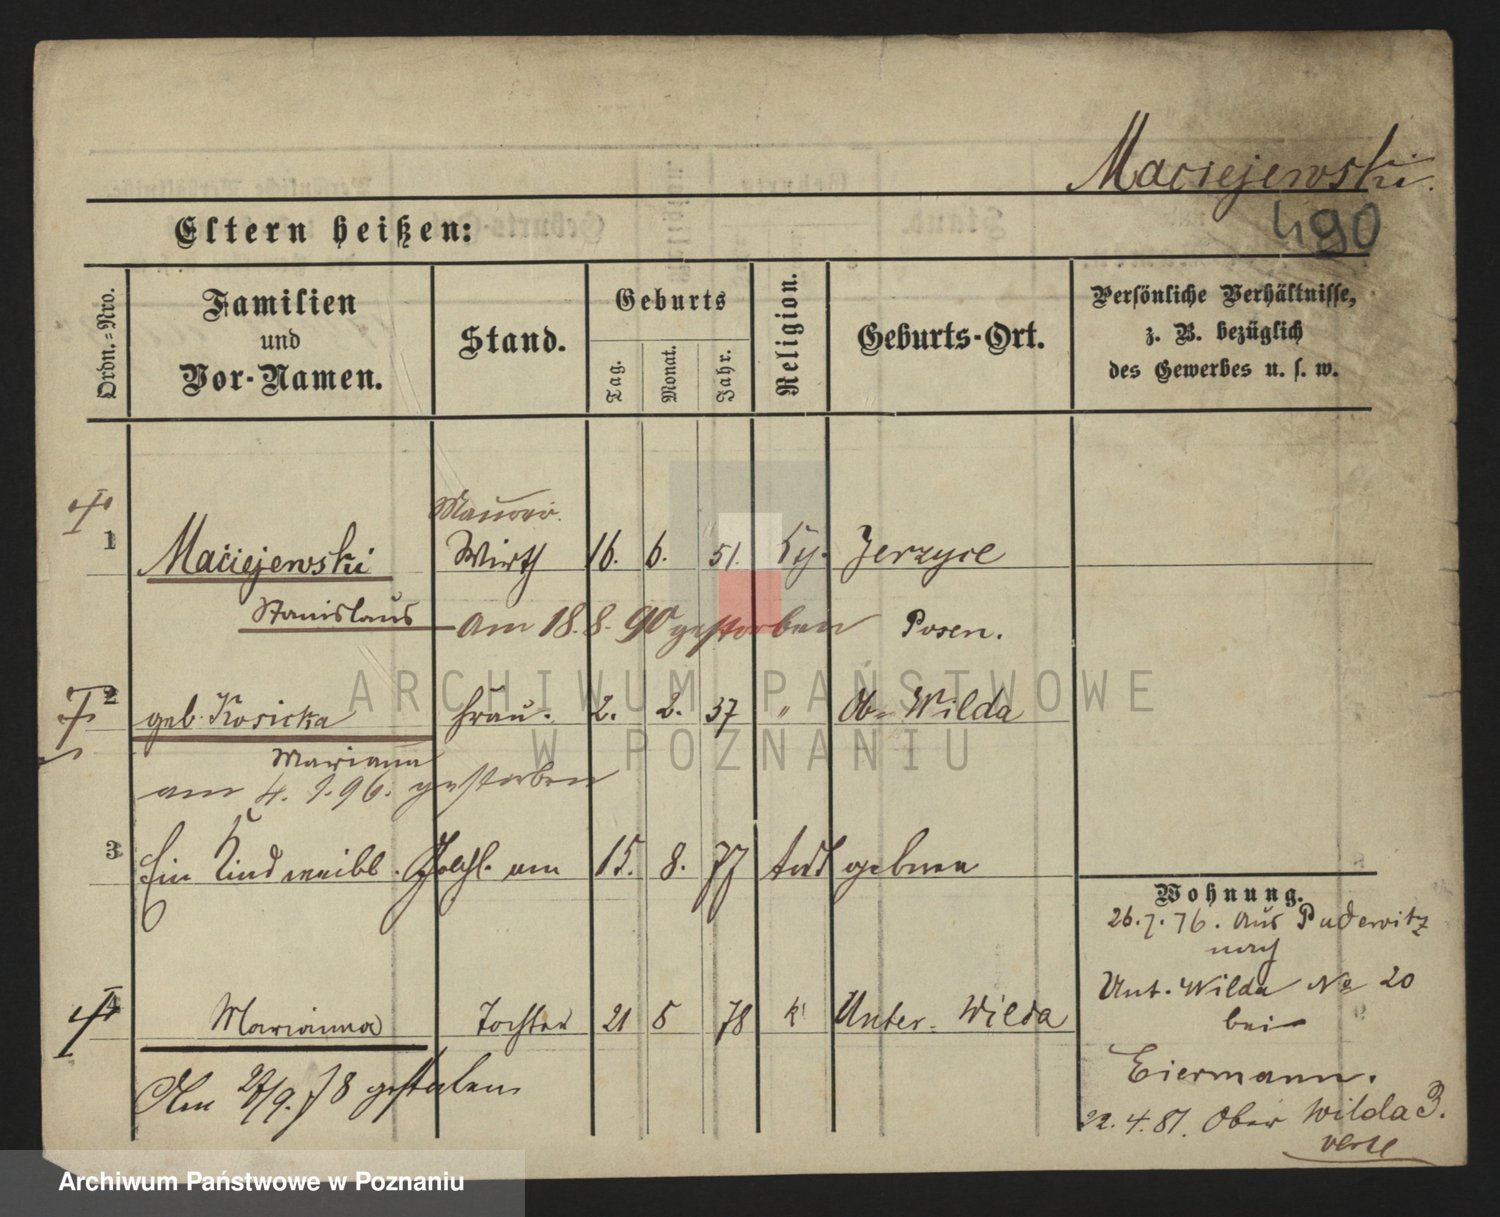 Maciejewski.
490
Eltern heißen:
Ordn.=Nro.
Familien
und
Vor-Namen.
Stand.
Geburts
Tag.
Monat.
Jahr.
Religion.
Geburts-Ort.
Persönliche Verhältnisse,
z. B. bezüglich
des Gewerbes u. s. w.
1 Maciejewski Wirth 16. 6. 51. Jerzyce
Stanislaus am 18. 8. 90 gestorben Posen.
ARCHIWUM PAŃSTWOWE
W POZNANIU
2 geb. Kosicka Frau. 2. 2. 37 " Ob- Wilda
Marianna
am 4. 9. 96. gestorben
3 Ein Kind weibl. Geschl. am 15. 8. 77 todt geboren
4 Marianna Tochter 21 5 78 k Unter- Wilda
Am 27/9. 78 gestorben
Wohnung.
26. 7. 76. Aus Pudewitz
nach
Unt. Wilda No 20
bei
Eiermann.
22. 4. 81. Ober Wilda 3.
verte
Archiwum Państwowe w Poznaniu